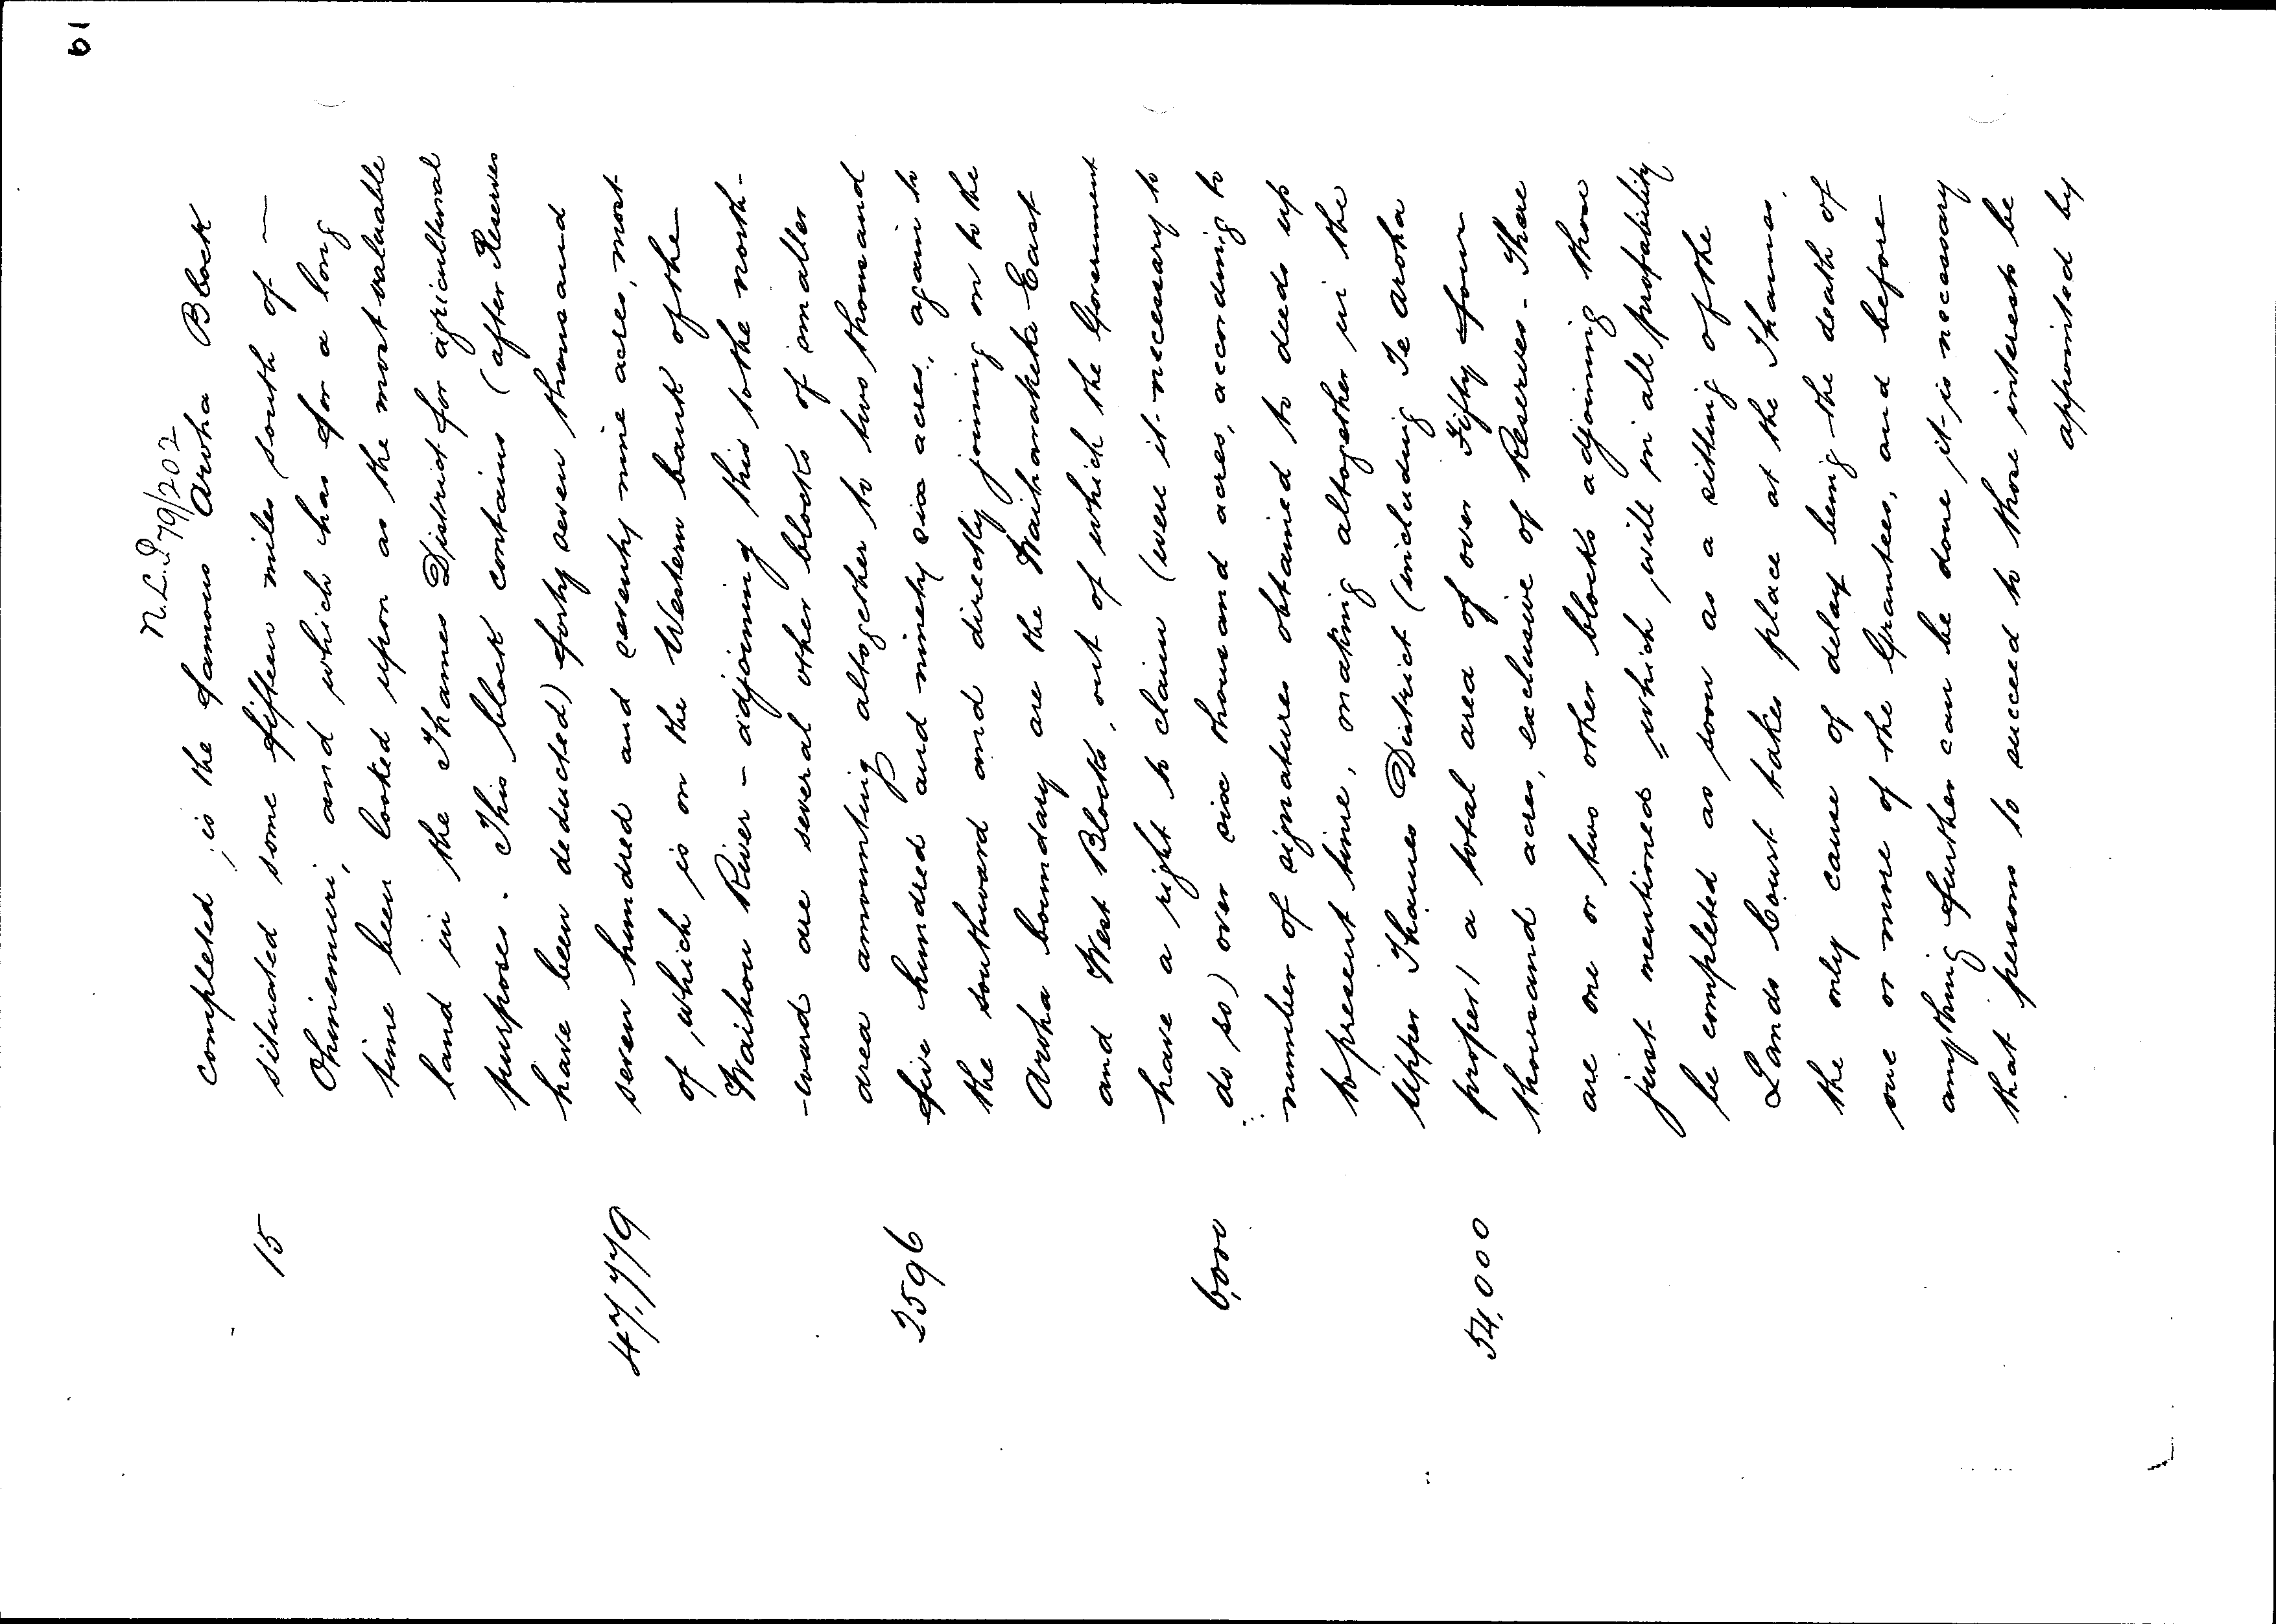 19
N.L.P 79/202
completed, is the famous Aroha Block
15 situated some fifteen miles south of —
Ohinemuri, and which has for a long
time been looked upon as the most valuable
land in the Thames District for agricultural
purposes. This block contains (after Reserves
have been deducted) forty seven thousand
47,779 seven hundred and seventy nine acres, most
of which is on the Western bank of the
Waihou River – adjoining this to the north-
-ward are several other blocks of smaller
area amounting altogether to two thousand
2596 five hundred and ninety six acres, again to
the southward and directly joining on to the
Aroha boundary are the Waiharakeke East
and West Blocks, out of which the Government
have a right to claim (were it necessary to
6,000 do so) over six thousand acres, according to
number of signatures obtained to deeds up
to present time, making altogether in the
Upper Thames District (including Te Aroha
54,000 proper) a total area of over Fifty four
thousand acres, exclusive of Reserves – There
are one or two other blocks adjoining those
just mentioned which will in all probability
be completed as soon as a sitting of the
Lands Court takes place at the Thames,
the only cause of delay being the death of
one or more of the Grantees, and before
anything further can be done it is necessary
that persons to succeed to those interests be
appointed by